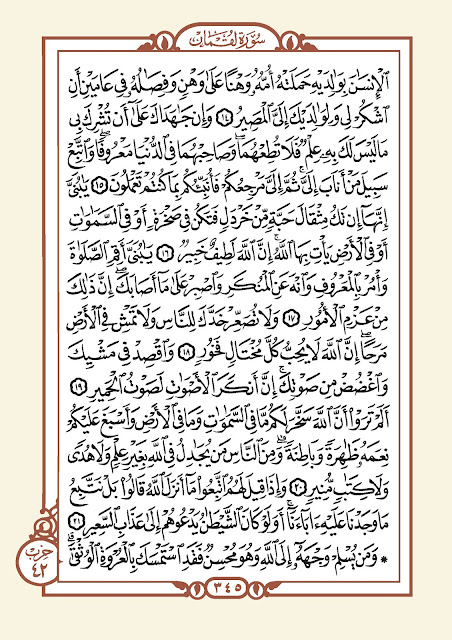 سُورَةُ لُقْمَان
ٱلْإِنسَٰنَ بِوَٰلِدَيْهِ حَمَلَتْهُ أُمُّهُۥ وَهْنًا عَلَىٰ وَهْنٍ وَفِصَٰلُهُۥ فِى عَامَيْنِ أَنِ
ٱشْكُرْ لِى وَلِوَٰلِدَيْكَ إِلَىَّ ٱلْمَصِيرُ ١٤ وَإِن جَٰهَدَاكَ عَلَىٰٓ أَن تُشْرِكَ بِى
مَا لَيْسَ لَكَ بِهِۦ عِلْمٌ فَلَا تُطِعْهُمَا ۖ وَصَاحِبْهُمَا فِى ٱلدُّنْيَا مَعْرُوفًا ۖ وَٱتَّبِعْ
سَبِيلَ مَنْ أَنَابَ إِلَىَّ ۚ ثُمَّ إِلَىَّ مَرْجِعُكُمْ فَأُنَبِّئُكُم بِمَا كُنتُمْ تَعْمَلُونَ ١٥ يَٰبُنَىَّ
إِنَّهَآ إِن تَكُ مِثْقَالَ حَبَّةٍ مِّنْ خَرْدَلٍ فَتَكُن فِى صَخْرَةٍ أَوْ فِى ٱلسَّمَٰوَٰتِ
أَوْ فِى ٱلْأَرْضِ يَأْتِ بِهَا ٱللَّهُ ۚ إِنَّ ٱللَّهَ لَطِيفٌ خَبِيرٌ ١٦ يَٰبُنَىَّ أَقِمِ ٱلصَّلَوٰةَ
وَأْمُرْ بِٱلْمَعْرُوفِ وَٱنْهَ عَنِ ٱلْمُنكَرِ وَٱصْبِرْ عَلَىٰ مَآ أَصَابَكَ ۖ إِنَّ ذَٰلِكَ
مِنْ عَزْمِ ٱلْأُمُورِ ١٧ وَلَا تُصَعِّرْ خَدَّكَ لِلنَّاسِ وَلَا تَمْشِ فِى ٱلْأَرْضِ
مَرَحًا ۖ إِنَّ ٱللَّهَ لَا يُحِبُّ كُلَّ مُخْتَالٍ فَخُورٍ ١٨ وَٱقْصِدْ فِى مَشْيِكَ
وَٱغْضُضْ مِن صَوْتِكَ ۚ إِنَّ أَنكَرَ ٱلْأَصْوَٰتِ لَصَوْتُ ٱلْحَمِيرِ ١٩
أَلَمْ تَرَوْا۟ أَنَّ ٱللَّهَ سَخَّرَ لَكُم مَّا فِى ٱلسَّمَٰوَٰتِ وَمَا فِى ٱلْأَرْضِ وَأَسْبَغَ عَلَيْكُمْ
نِعَمَهُۥ ظَٰهِرَةً وَبَاطِنَةً ۗ وَمِنَ ٱلنَّاسِ مَن يُجَٰدِلُ فِى ٱللَّهِ بِغَيْرِ عِلْمٍ وَلَا هُدًى
وَلَا كِتَٰبٍ مُّنِيرٍ ٢٠ وَإِذَا قِيلَ لَهُمُ ٱتَّبِعُوا۟ مَآ أَنزَلَ ٱللَّهُ قَالُوا۟ بَلْ نَتَّبِعُ
مَا وَجَدْنَا عَلَيْهِ ءَابَآءَنَآ ۚ أَوَلَوْ كَانَ ٱلشَّيْطَٰنُ يَدْعُوهُمْ إِلَىٰ عَذَابِ ٱلسَّعِيرِ ٢١
* وَمَن يُسْلِمْ وَجْهَهُۥٓ إِلَى ٱللَّهِ وَهُوَ مُحْسِنٌ فَقَدِ ٱسْتَمْسَكَ بِٱلْعُرْوَةِ ٱلْوُثْقَىٰ ۗ
حزب
٤٢
٣٤٥